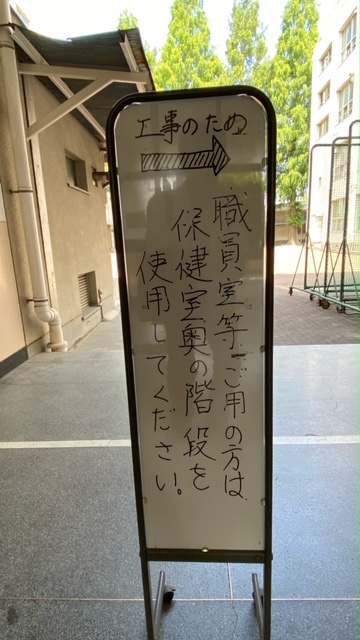 工事のため
職員室等ご用の方は
保健室奥の階段を
使用してください。